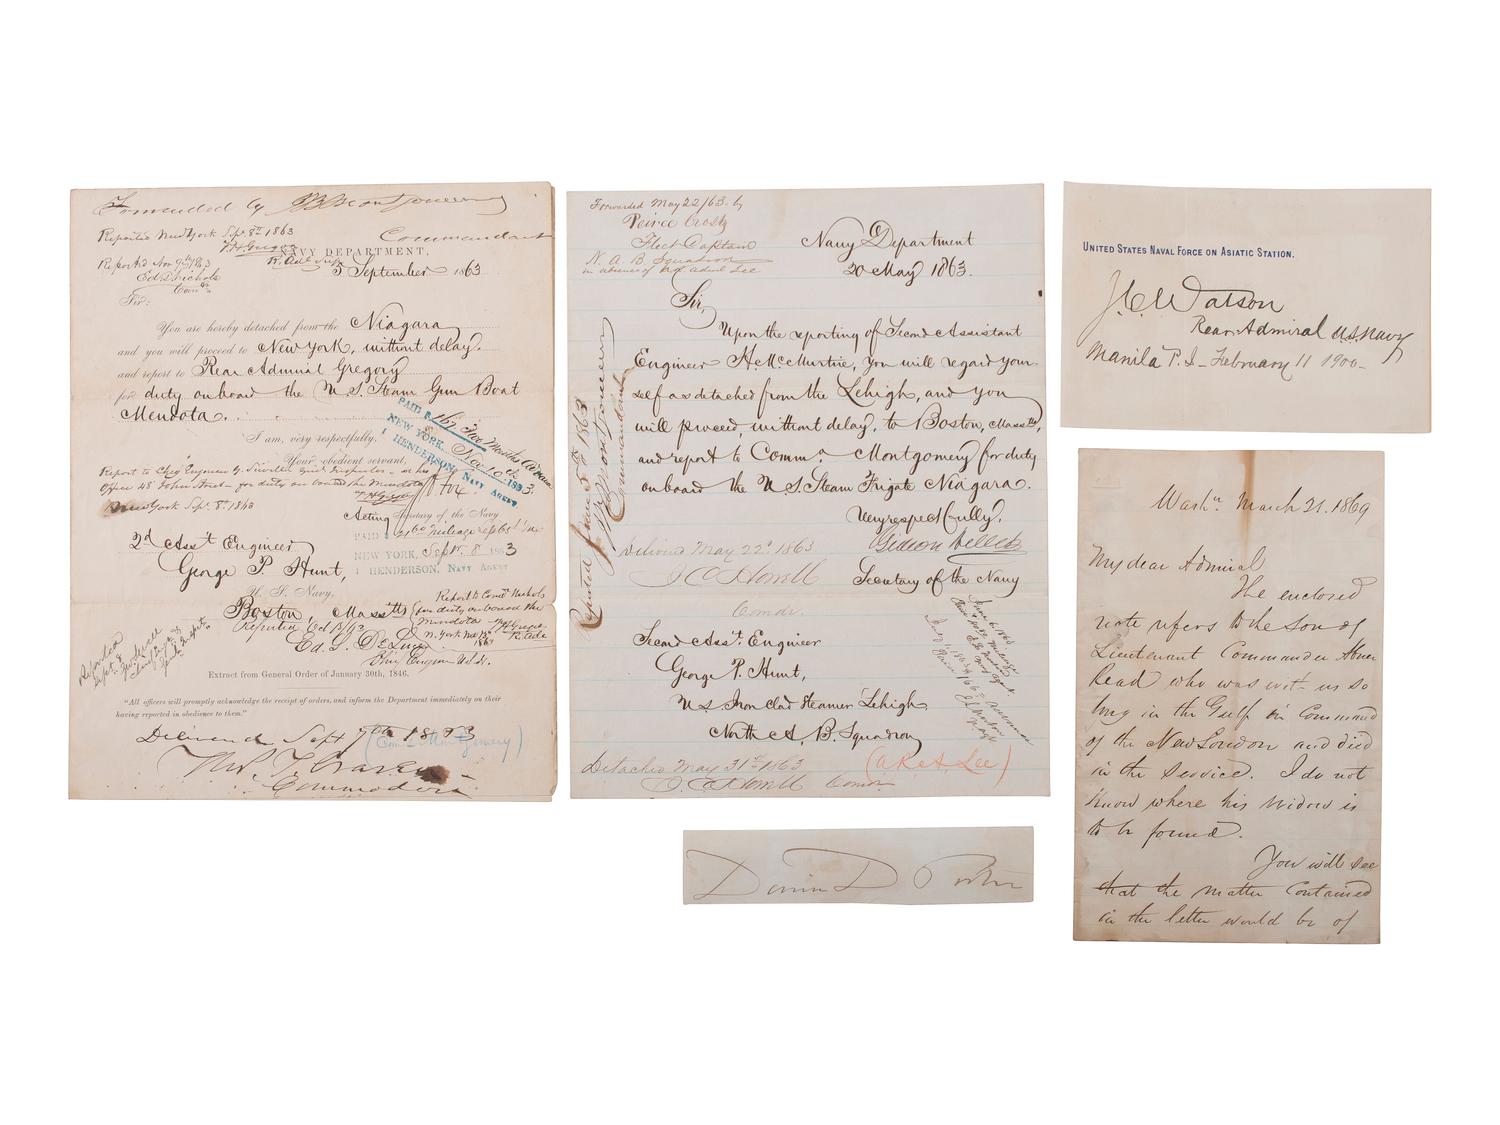 Forwarded by JBMontgomery
Commandant
Reported New York Sep. 8th 1863
NAVY DEPARTMENT,
3 September 1863
Reported Nov 9th 1863
Sir:
You are hereby detached from the Niagara
and you will proceed to New York, without delay,
and report to Rear Admiral Gregory
for duty on board the U.S. Steam Gun Boat
Mendota.
I am, very respectfully,
Your obedient servant,
Report to Chief Engineer
Office 45 John Street for duty on board the Mendota
New York Sep. 8th 1863
Acting Secretary of the Navy
PAID $ 167
NEW YORK, Nov 10th 1863
HENDERSON, NAVY AGENT
PAID $
NEW YORK, Sep. 8 1863
HENDERSON, NAVY AGENT
2d Asst Engineer
George P. Hunt,
U. S. Navy,
Boston, Massts
Report to Comre Nichols
for duty on board the
Mendota
N. York
Extract from General Order of January 30th, 1846.
"All officers will promptly acknowledge the receipt of orders, and inform the Department immediately on their
having reported in obedience to them."
Delivered Sept 7th 1863
(Com. Montgomery)
Thos. T. Craven
Commodore
Forwarded May 22/63 by
Peirce Crosby
Fleet Captain
N. A. B. Squadron
in absence of Act Adml Lee
Navy Department
20 May 1863.
Sir,
Upon the reporting of Second Assistant
Engineer H McMurtrie, you will regard your-
self as detached from the Lehigh, and you
will proceed, without delay, to Boston, Massts,
and report to Commo. Montgomery for duty
on board the U S. Steam Frigate Niagara.
Very respectfully,
Gideon Welles
Secretary of the Navy
Reported June 5th 1863
JBMontgomery
Commandant
Delivered May 22d 1863
J C Howell
Comdr.
Second Asst. Engineer
George P. Hunt,
U S Iron clad Steamer Lehigh
North A, B. Squadron
Detached May 31st 1863
J. C Howell Comdr
(A.R.A. Lee)
UNITED STATES NAVAL FORCE ON ASIATIC STATION.
J.C. Watson
Rear-Admiral U.S. Navy
Manila P. I - February 11 1900-
Washn March 21. 1869
My dear Admiral
The enclosed
note refers to the son of
Lieutenant Commander Abner
Read who was with us so
long in the Gulf in Command
of the New London and died
in the service. I do not
know where his widow is
to be found.
You will see
that the matter contained
in the letter would be of
David D Porter